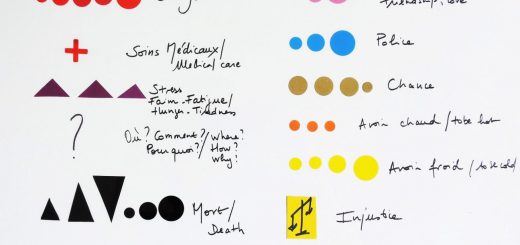 Friendship, love
Soins Médicaux/
Medical care
Police
Stress
Faim - Fatigue/
Hunger - Tiredness
Chance
?
Où? Comment?/Where?
Pourquoi?/ How?
Why?
Avoir chaud/to be hot
Avoir froid/to be cold
Mort/
Death
Injustice